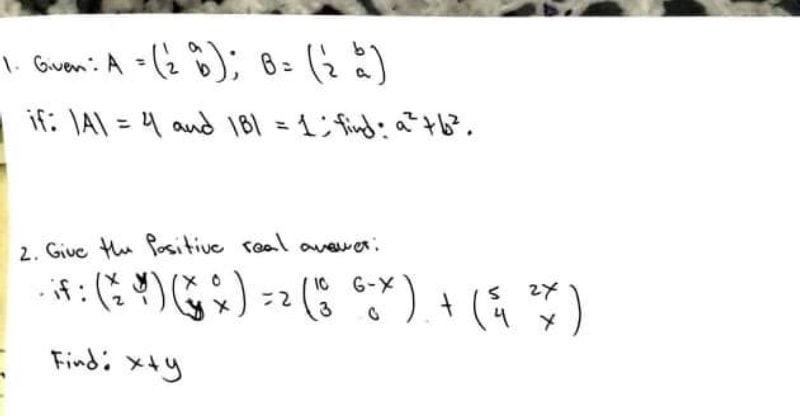 1. Given: A = (1 a; 2 b); B = (1 b; 2 a)
if: |A| = 4 and |B| = 1; find: a² + b².
2. Give the Positive real answer:
· if: (x y; 2 1) (x 0; y x) = 2 (10 6-x; 3 0) + (5 2x; 4 x)
Find: x+y